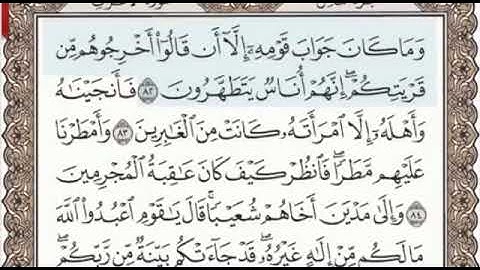 وَمَا كَانَ جَوَابَ قَوْمِهِۦٓ إِلَّآ أَن قَالُوٓا۟ أَخْرِجُوهُم مِّن
قَرْيَتِكُمْ ۖ إِنَّهُمْ أُنَاسٌ يَتَطَهَّرُونَ ٨٢ فَأَنجَيْنَٰهُ
وَأَهْلَهُۥٓ إِلَّا ٱمْرَأَتَهُۥ كَانَتْ مِنَ ٱلْغَٰبِرِينَ ٨٣ وَأَمْطَرْنَا
عَلَيْهِم مَّطَرًا ۖ فَٱنظُرْ كَيْفَ كَانَ عَٰقِبَةُ ٱلْمُجْرِمِينَ
٨٤ وَإِلَىٰ مَدْيَنَ أَخَاهُمْ شُعَيْبًا ۗ قَالَ يَٰقَوْمِ ٱعْبُدُوا۟ ٱللَّهَ
مَا لَكُم مِّنْ إِلَٰهٍ غَيْرُهُۥ ۖ قَدْ جَآءَتْكُم بَيِّنَةٌ مِّن رَّبِّكُمْ ۖ